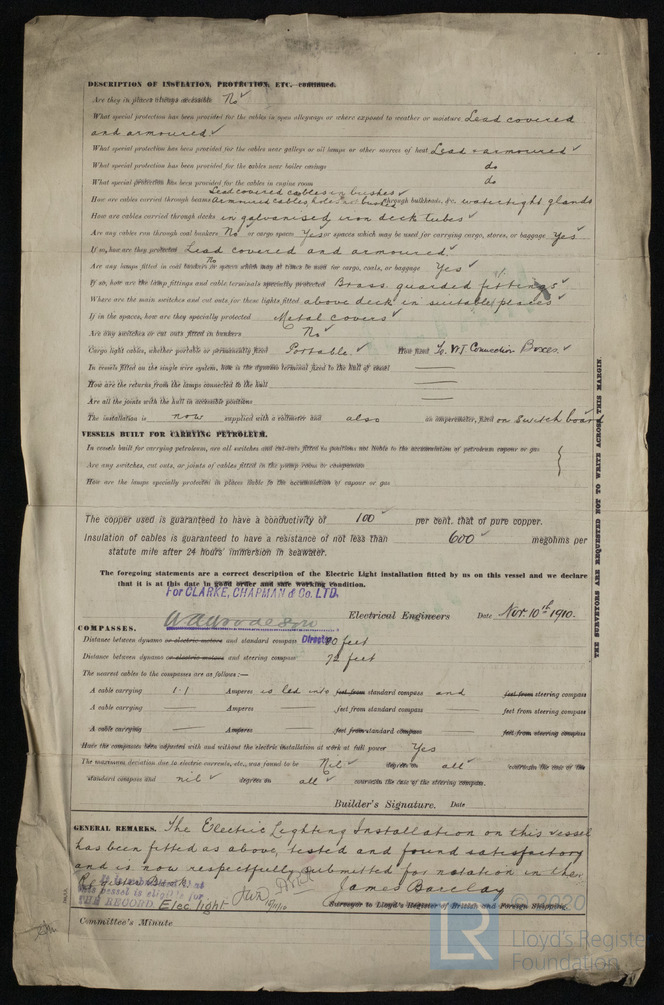 DESCRIPTION OF INSULATION, PROTECTION, ETC. continued.
Are they in places always accessible No ✓
What special protection has been provided for the cables in open alleyways or where exposed to weather or moisture Lead covered
and armoured ✓
What special protection has been provided for the cables near galleys or oil lamps or other sources of heat Lead + armoured ✓
What special protection has been provided for the cables near boiler casings do
What special protection has been provided for the cables in engine room do
Lead covered cables in bushes ✓
How are cables carried through beams Armoured cables, holes not bushed through bulkheads, &c. watertight glands
How are cables carried through decks in galvanised iron deck tubes ✓
Are any cables run through coal bunkers No ✓ or cargo spaces Yes or spaces which may be used for carrying cargo, stores, or baggage Yes ✓
If so, how are they protected Lead covered and armoured. ✓
Are any lamps fitted in coal bunkers No or spaces which may at times be used for cargo, coals, or baggage Yes ✓
If so, how are the lamp fittings and cable terminals specially protected Brass guarded fittings ✓
Where are the main switches and cut outs for these lights fitted above deck in suitable places ✓
If in the spaces, how are they specially protected Metal covers ✓
Are any switches or cut outs fitted in bunkers No ✓
Cargo light cables, whether portable or permanently fixed Portable. ✓ How fixed To WT Connection Boxes. ✓
In vessels fitted on the single wire system, how is the dynamo terminal fixed to the hull of vessel ——
How are the returns from the lamps connected to the hull ——
Are all the joints with the hull in accessible positions ——
The installation is now supplied with a voltmeter and also an amperemeter, fixed on switch board
VESSELS BUILT FOR CARRYING PETROLEUM.
In vessels built for carrying petroleum, are all switches and cut-outs fitted in positions not liable to the accumulation of petroleum vapour or gas
Are any switches, cut outs, or joints of cables fitted in the pump room or companion
How are the lamps specially protected in places liable to the accumulation of vapour or gas
The copper used is guaranteed to have a conductivity of 100 ✓ per cent. that of pure copper.
Insulation of cables is guaranteed to have a resistance of not less than 600 ✓ megohms per
statute mile after 24 hours' immersion in seawater.
The foregoing statements are a correct description of the Electric Light installation fitted by us on this vessel and we declare
that it is at this date in good order and safe working condition.
For CLARKE, CHAPMAN & Co. LTD.
Electrical Engineers Date Nov. 10th 1910.
Director
COMPASSES.
Distance between dynamo or electric motors and standard compass 80 feet
Distance between dynamo or electric motors and steering compass 72 feet
The nearest cables to the compasses are as follows:—
A cable carrying 1·1 Amperes is led into feet from standard compass and feet from steering compass
A cable carrying —— Amperes —— feet from standard compass —— feet from steering compass
A cable carrying —— Amperes —— feet from standard compass —— feet from steering compass
Have the compasses been adjusted with and without the electric installation at work at full power Yes
The maximum deviation due to electric currents, etc., was found to be Nil ✓ degrees on all ✓ course in the case of the
standard compass and nil ✓ degrees on all ✓ course in the case of the steering compass.
Builder's Signature. Date
GENERAL REMARKS. The Electric Lighting Installation on this vessel
has been fitted as above, tested and found satisfactory
and is now respectfully submitted for notation in the
Register Book.
James Barclay
Surveyor to Lloyd's Register of British and Foreign Shipping.
this vessel is eligible for
THE RECORD. Elec light
Committee's Minute
THE SURVEYORS ARE REQUESTED NOT TO WRITE ACROSS THIS MARGIN.
© 2020
LR Lloyd's Register
Foundation